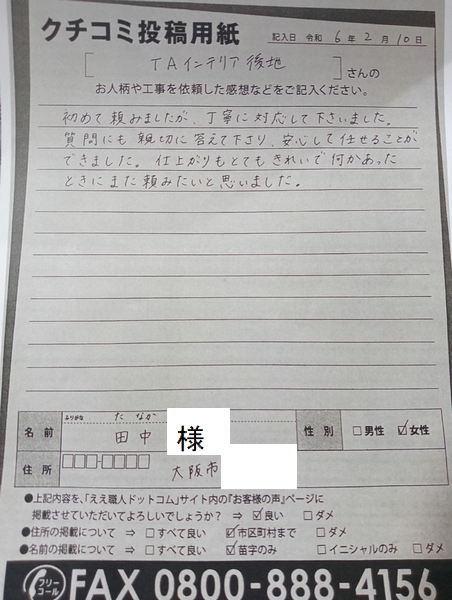 クチコミ投稿用紙
記入日 令和 6年 2月 10日
[ TAインテリア後地 ] さんの
お人柄や工事を依頼した感想などをご記入ください。
初めて頼みましたが、丁寧に対応して下さいました。
質問にも親切に答えて下さり、安心して任せることが
できました。仕上がりもとてもきれいで何かあった
ときにまた頼みたいと思いました。
ふりがな たなか
名前 田中 様 性別 □男性 ☑女性
住所 大阪市
●上記内容を、「ええ職人ドットコム」サイト内の『お客様の声』ページに
掲載させていただいてよろしいでしょうか? ⇒ ☑良い □ダメ
●住所の掲載について ⇒ □すべて良い ☑市区町村まで □ダメ
●名前の掲載について ⇒ □すべて良い ☑苗字のみ □イニシャルのみ □ダメ
フリーコール FAX 0800-888-4156